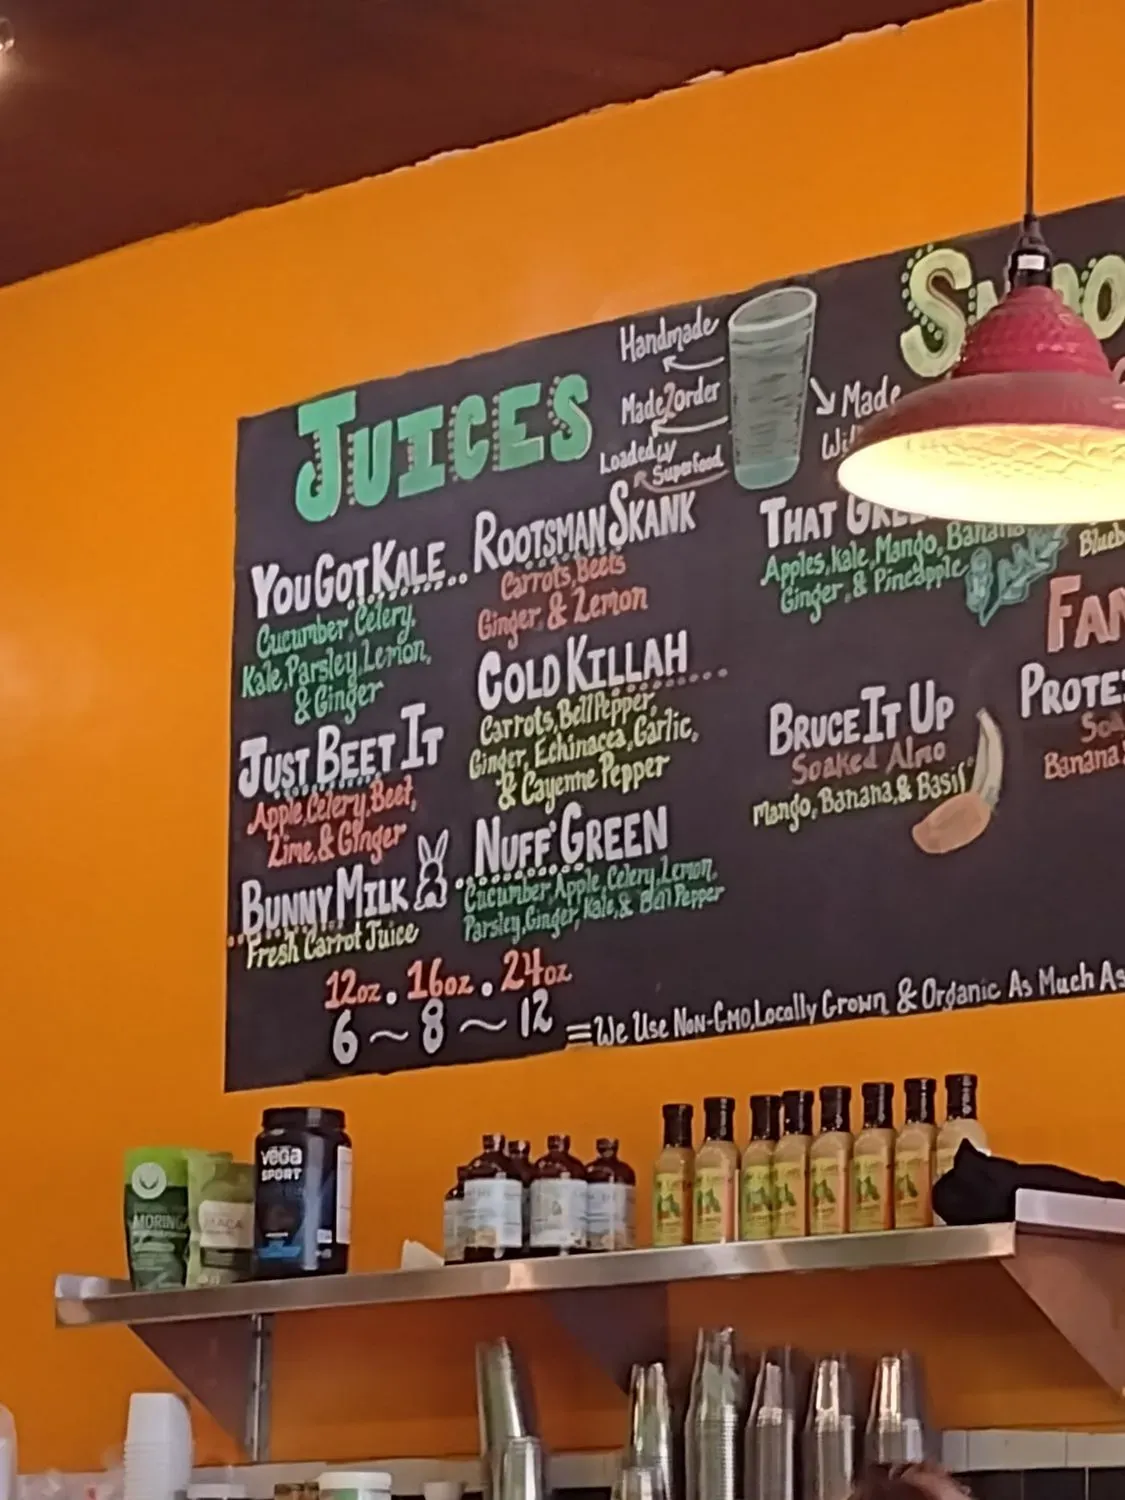 JUICES
Handmade
Made2order
Loaded w/
Superfood
YOU GOT KALE..
Cucumber, Celery,
Kale, Parsley, Lemon,
& Ginger
JUST BEET IT
Apple, Celery, Beet,
Lime, & Ginger
BUNNY MILK
Fresh Carrot Juice
ROOTSMAN SKANK
Carrots, Beets
Ginger, & Lemon
COLD KILLAH....
Carrots, Bell Pepper,
Ginger, Echinacea, Garlic,
& Cayenne Pepper
..NUFF' GREEN
Cucumber, Apple, Celery, Lemon,
Parsley, Ginger, Kale, & Bell Pepper
12oz. 16oz. 24oz
6 ~ 8 ~ 12
Made
THAT
Apples, Kale, Mango, Banana
Ginger, & Pineapple
BRUCE IT UP
Soaked Almo
Mango, Banana, & Basil
Banana
=We Use Non-GMO, Locally Grown & Organic As Much As
MORINGA
MACA
vega
SPORT